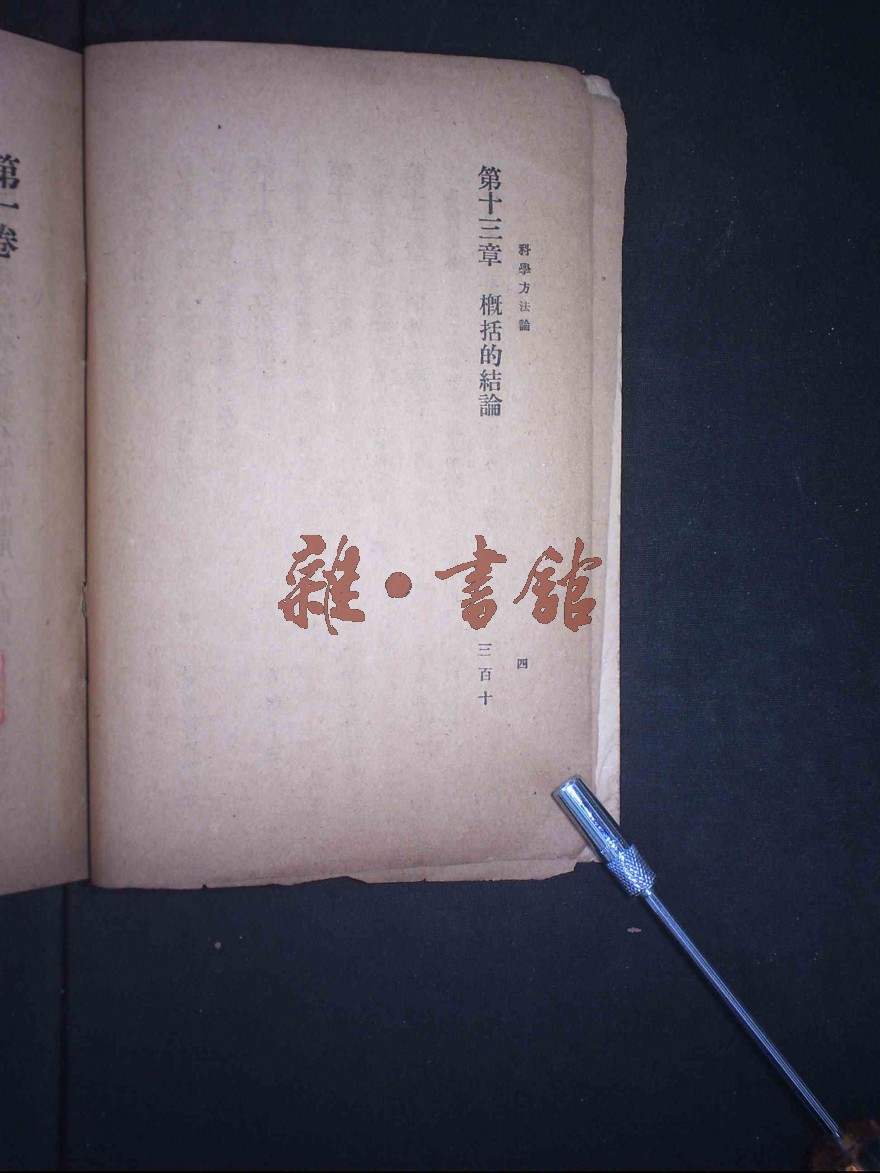 科學方法論
四
第十三章 概括的結論
三百十
雜・書館
第一卷